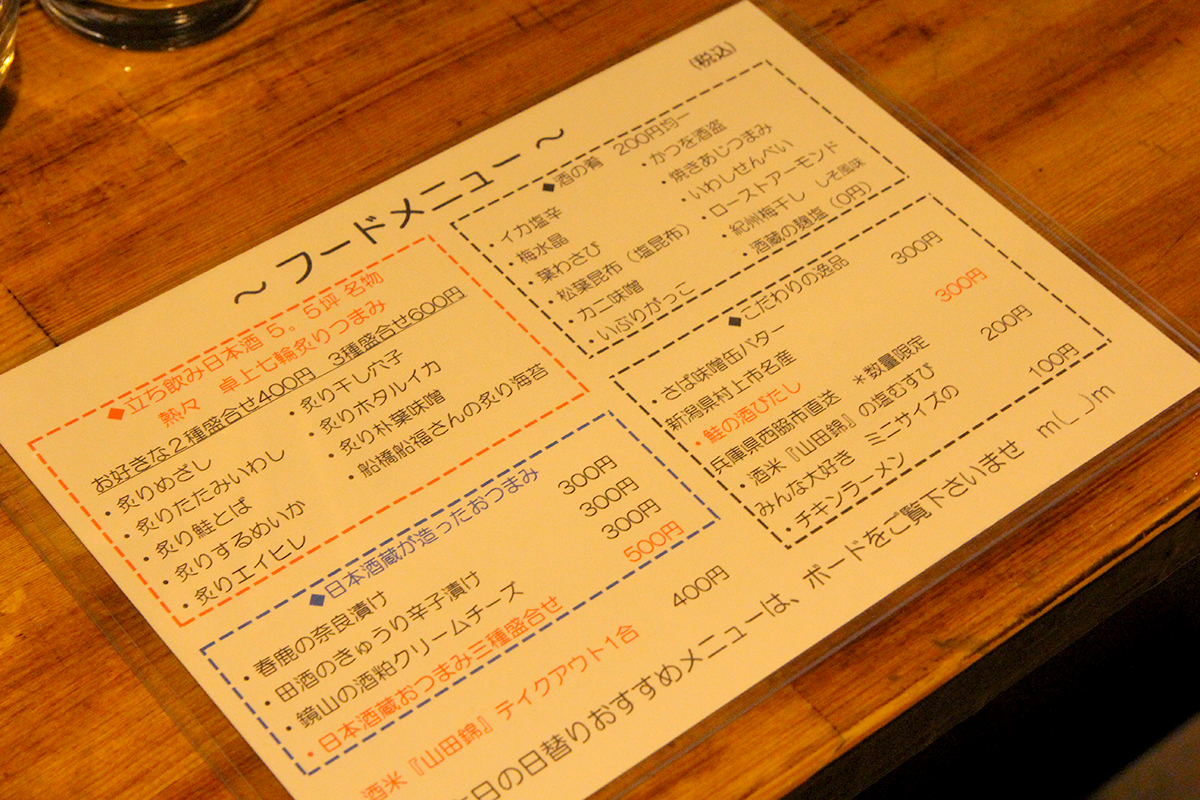 (税込)
～ フードメニュー ～
◆立ち飲み日本酒 5。5坪 名物
熱々 卓上七輪炙りつまみ
お好きな2種盛合せ400円 3種盛合せ600円
・炙りめざし
・炙りたたみいわし
・炙り鮭とば
・炙りするめいか
・炙りエイヒレ
・炙り干し穴子
・炙りホタルイカ
・炙り朴葉味噌
・船橋船福さんの炙り海苔
◆日本酒蔵が造ったおつまみ
・春鹿の奈良漬け 300円
・田酒のきゅうり辛子漬け 300円
・鏡山の酒粕クリームチーズ 300円
・日本酒蔵おつまみ三種盛合せ 500円
酒米『山田錦』テイクアウト1合 400円
◆酒の肴 200円均一
・イカ塩辛
・梅水晶
・葉わさび
・松葉昆布（塩昆布）
・カニ味噌
・いぶりがっこ
・かつを酒盗
・焼きあじつまみ
・いわしせんべい
・ローストアーモンド
・紀州梅干し しそ風味
・酒蔵の麹塩（0円）
◆こだわりの逸品
・さば味噌缶バター 300円
新潟県村上市名産
・鮭の酒びたし 300円
兵庫県西脇市直送 ＊数量限定
・酒米『山田錦』の塩むすび 200円
みんな大好き ミニサイズの
・チキンラーメン 100円
日の日替りおすすめメニューは、ボードをご覧下さいませ m(_ _)m